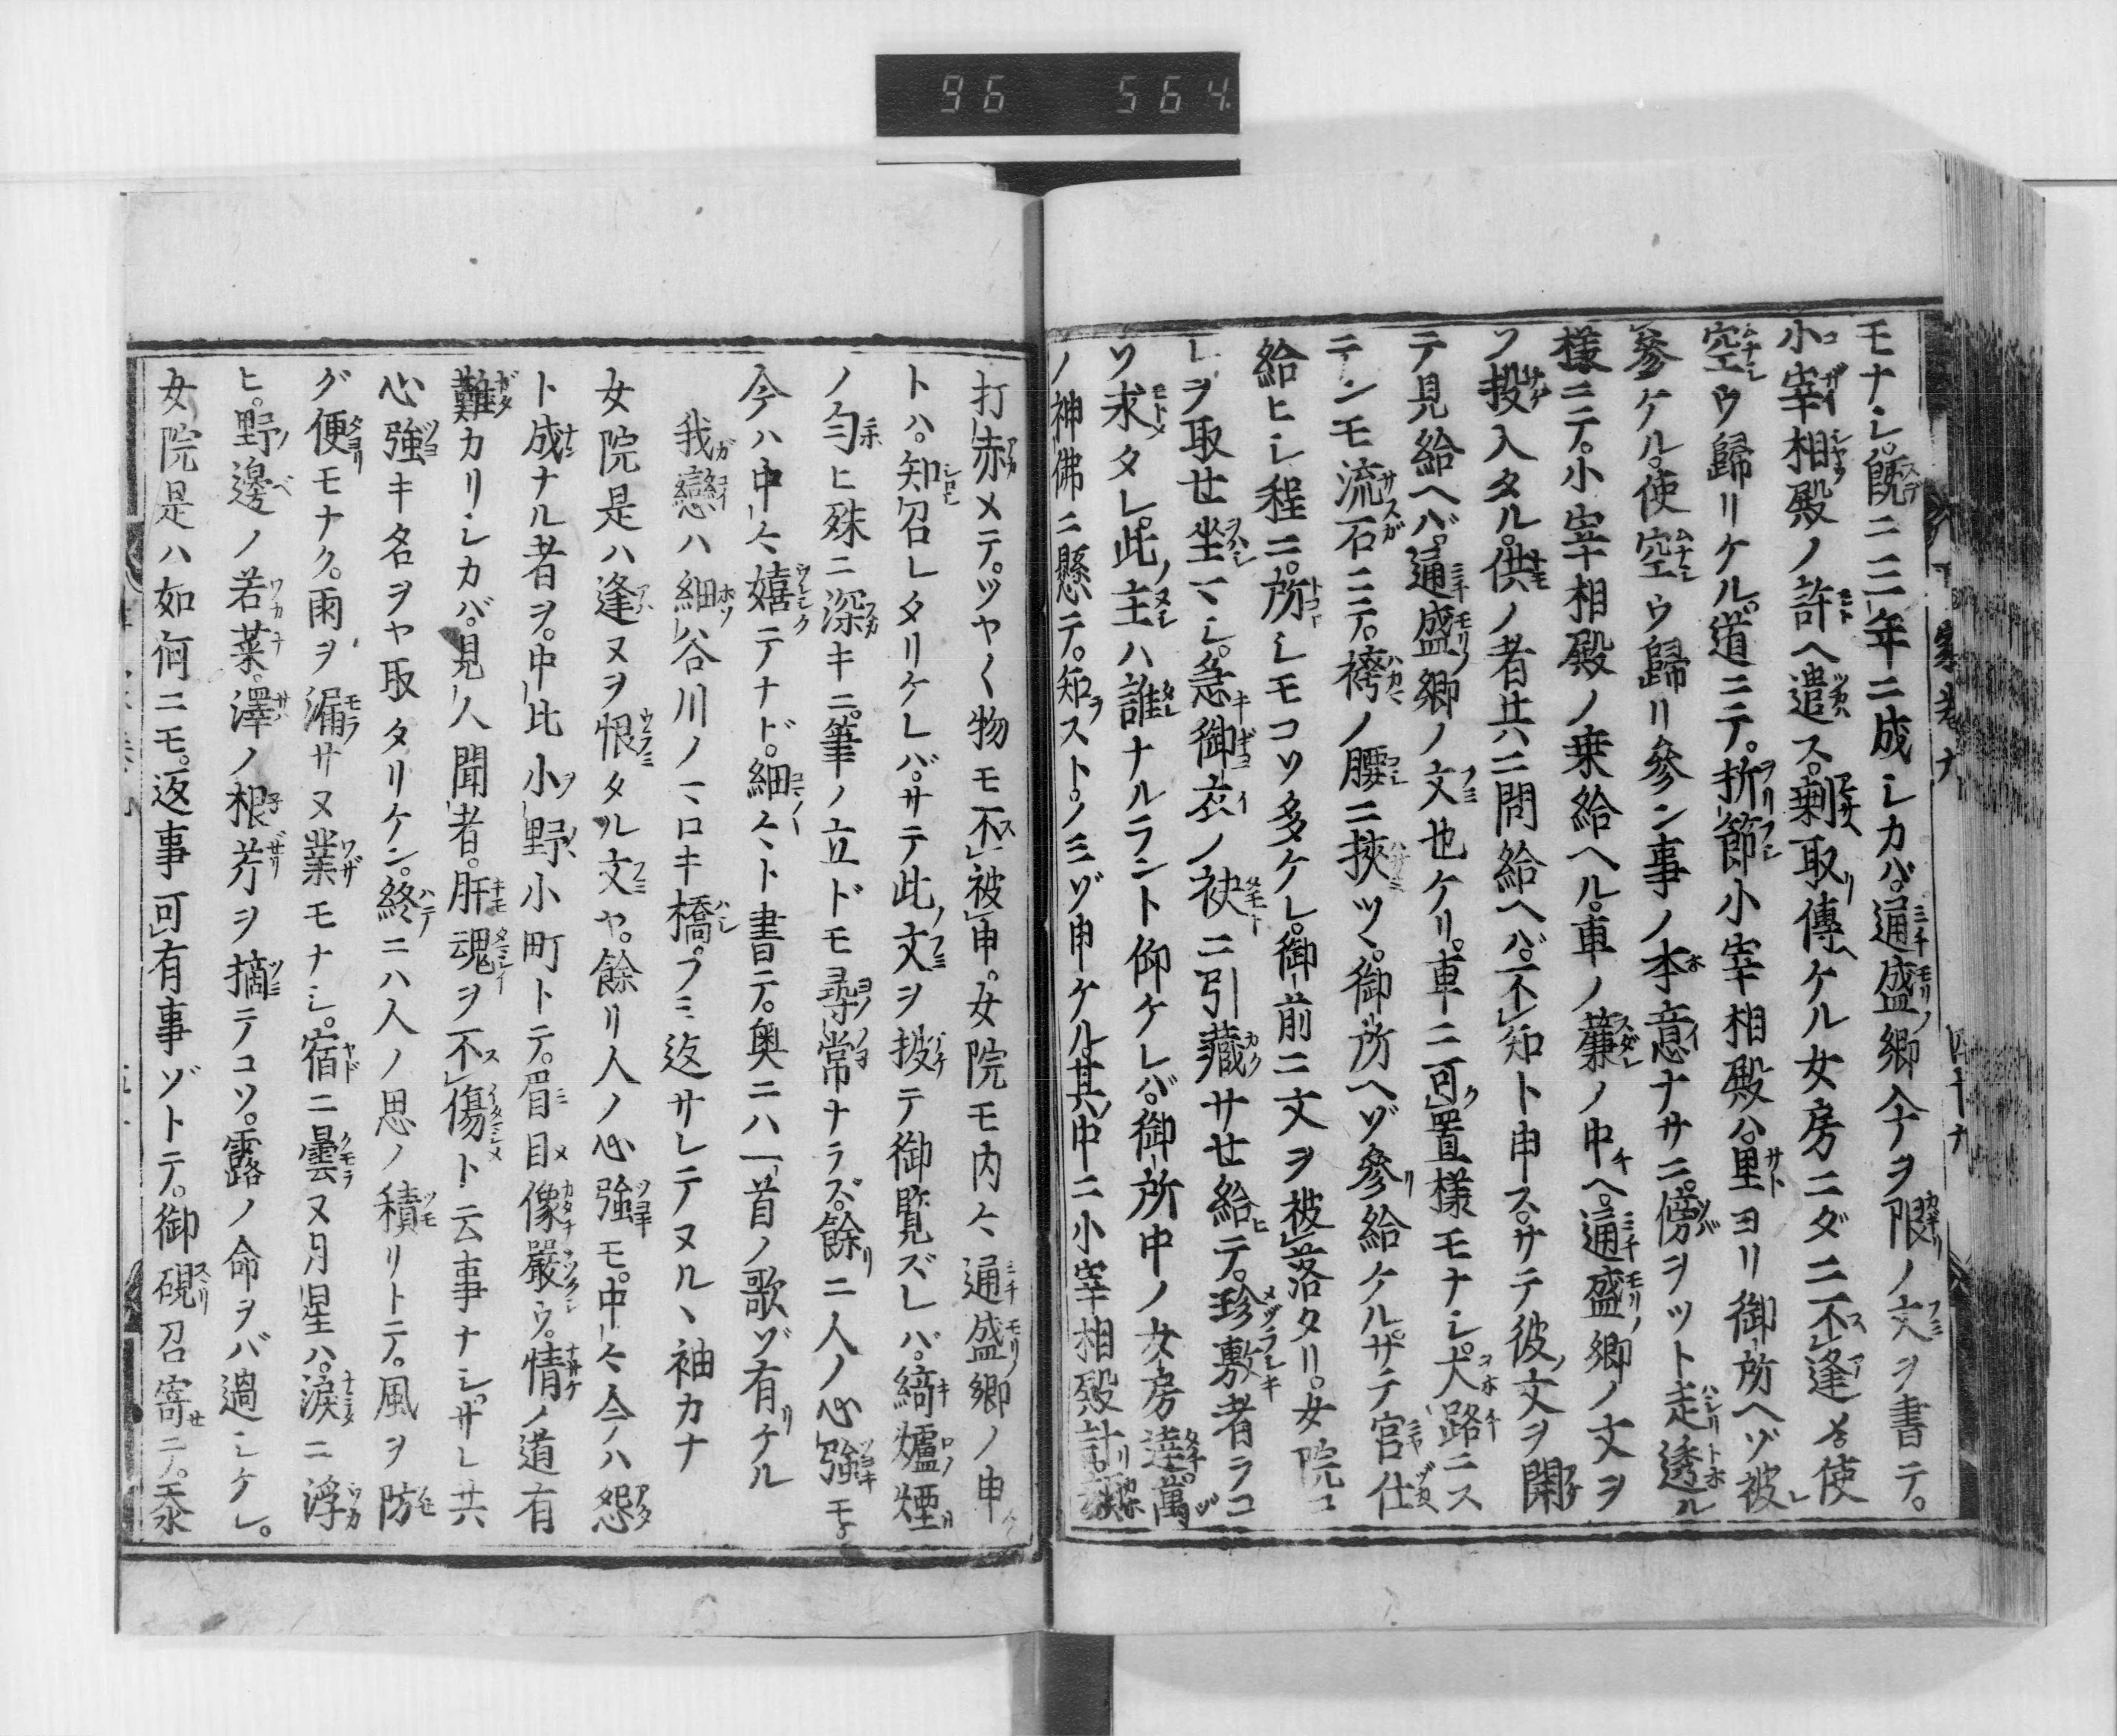 96 564
モナシ。既ニ三年ニ成シカバ。通盛卿今ヲ限ノ文ヲ書テ。
小宰相殿ノ許ヘ遣ス。剰取傳ケル女房ニダニ不逢シテ使
空ウ歸リケル。道ニテ。折節小宰相殿ハ。里ヨリ御所ヘゾ被
參ケル。使空ウ歸リ參ン事ノ本意ナサニ。傍ヲツト走透ル
樣ニテ。小宰相殿ノ乗給ヘル。車ノ簾ノ中ヘ。通盛卿ノ文ヲ
ゾ投入タル。供ノ者共ニ問給ヘバ。不知ト申ス。サテ彼文ヲ開
テ見給ヘバ。通盛卿ノ文也ケリ。車ニ可置樣モナシ。大路ニス
テンモ流石ニテ。袴ノ腰ニ挾ツヽ。御所ヘゾ參給ケル。サテ官仕
給ヒシ程ニ。所シモコソ多ケレ。御前ニ文ヲ被落タリ。女院コ
レヲ取せ坐マシ。急御衣ノ袂ニ引藏サせ給テ。珍敷者ヲコ
ソ求タレ。此主ハ誰ナルラント仰ケレバ。御所中ノ女房達。萬
ノ神佛ニ懸テ。知ストノミゾ申ケル。其中ニ小宰相殿計。顔
打赤メテ。ツヤ〱物モ不被申。女院モ内々通盛卿ノ申
トハ。知召レタリケレバ。サテ此文ヲ披テ御覧ズレバ。綺爐ノ煙
ノ匂ヒ殊ニ深キニ。筆ノ立ドモ尋常ナラズ。餘ニ人ノ心強モ。
今ハ中々嬉テナド。細々ト書テ。奥ニハ一首ノ歌ゾ有ケル
我戀ハ細谷川ノマロキ橋。フミ返サレテヌルヽ袖カナ
女院是ハ逢ヌヲ恨タル文ヤ。餘リ人ノ心強モ。中々今ハ怨
ト成ナル者ヲ。中比小野小町トテ。眉目像嚴ウ。情ノ道有
難カリシカバ。見人聞者。肝魂ヲ不傷ト云事ナシ。サレ共
心強キ名ヲヤ取タリケン。終ニハ人ノ思ノ積リトテ。風ヲ防
グ便モナク。雨ヲ漏サヌ業モナシ。宿ニ曇ヌ月星ハ。涙ニ浮
ヒ。野邊ノ若菜。澤ノ根芹ヲ摘テコソ。露ノ命ヲバ過シケレ。
女院是ハ如何ニモ。返事可有事ゾトテ。御硯召寄せテ。忝